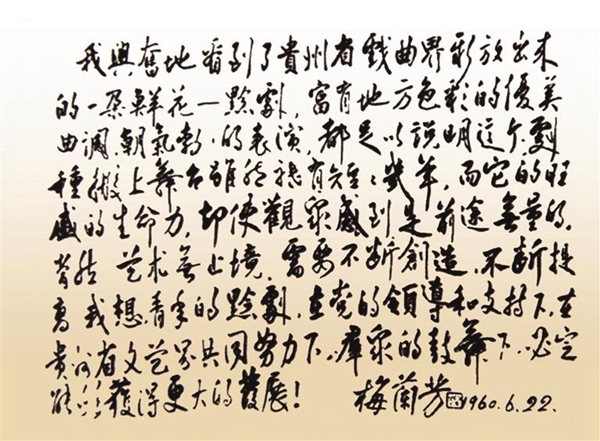 我興奮地看到了貴州省戲曲界新放出来
的一朵鮮花—黔劇，富有地方色彩的優美
曲調，朝氣勃々的表演，都足以說明这个劇
種搬上舞台雖然祇有短々幾年，而它的旺
盛的生命力，却使觀眾感到是前途無量的。
當然 艺术無止境，需要不断創造，不断提
高 我想，青年的黔劇，在党的領導和支持下，在
貴州省文艺界共同努力下，羣眾的鼓舞下，必定
能够獲得更大的發展！ 梅蘭芳 1960.6.22.